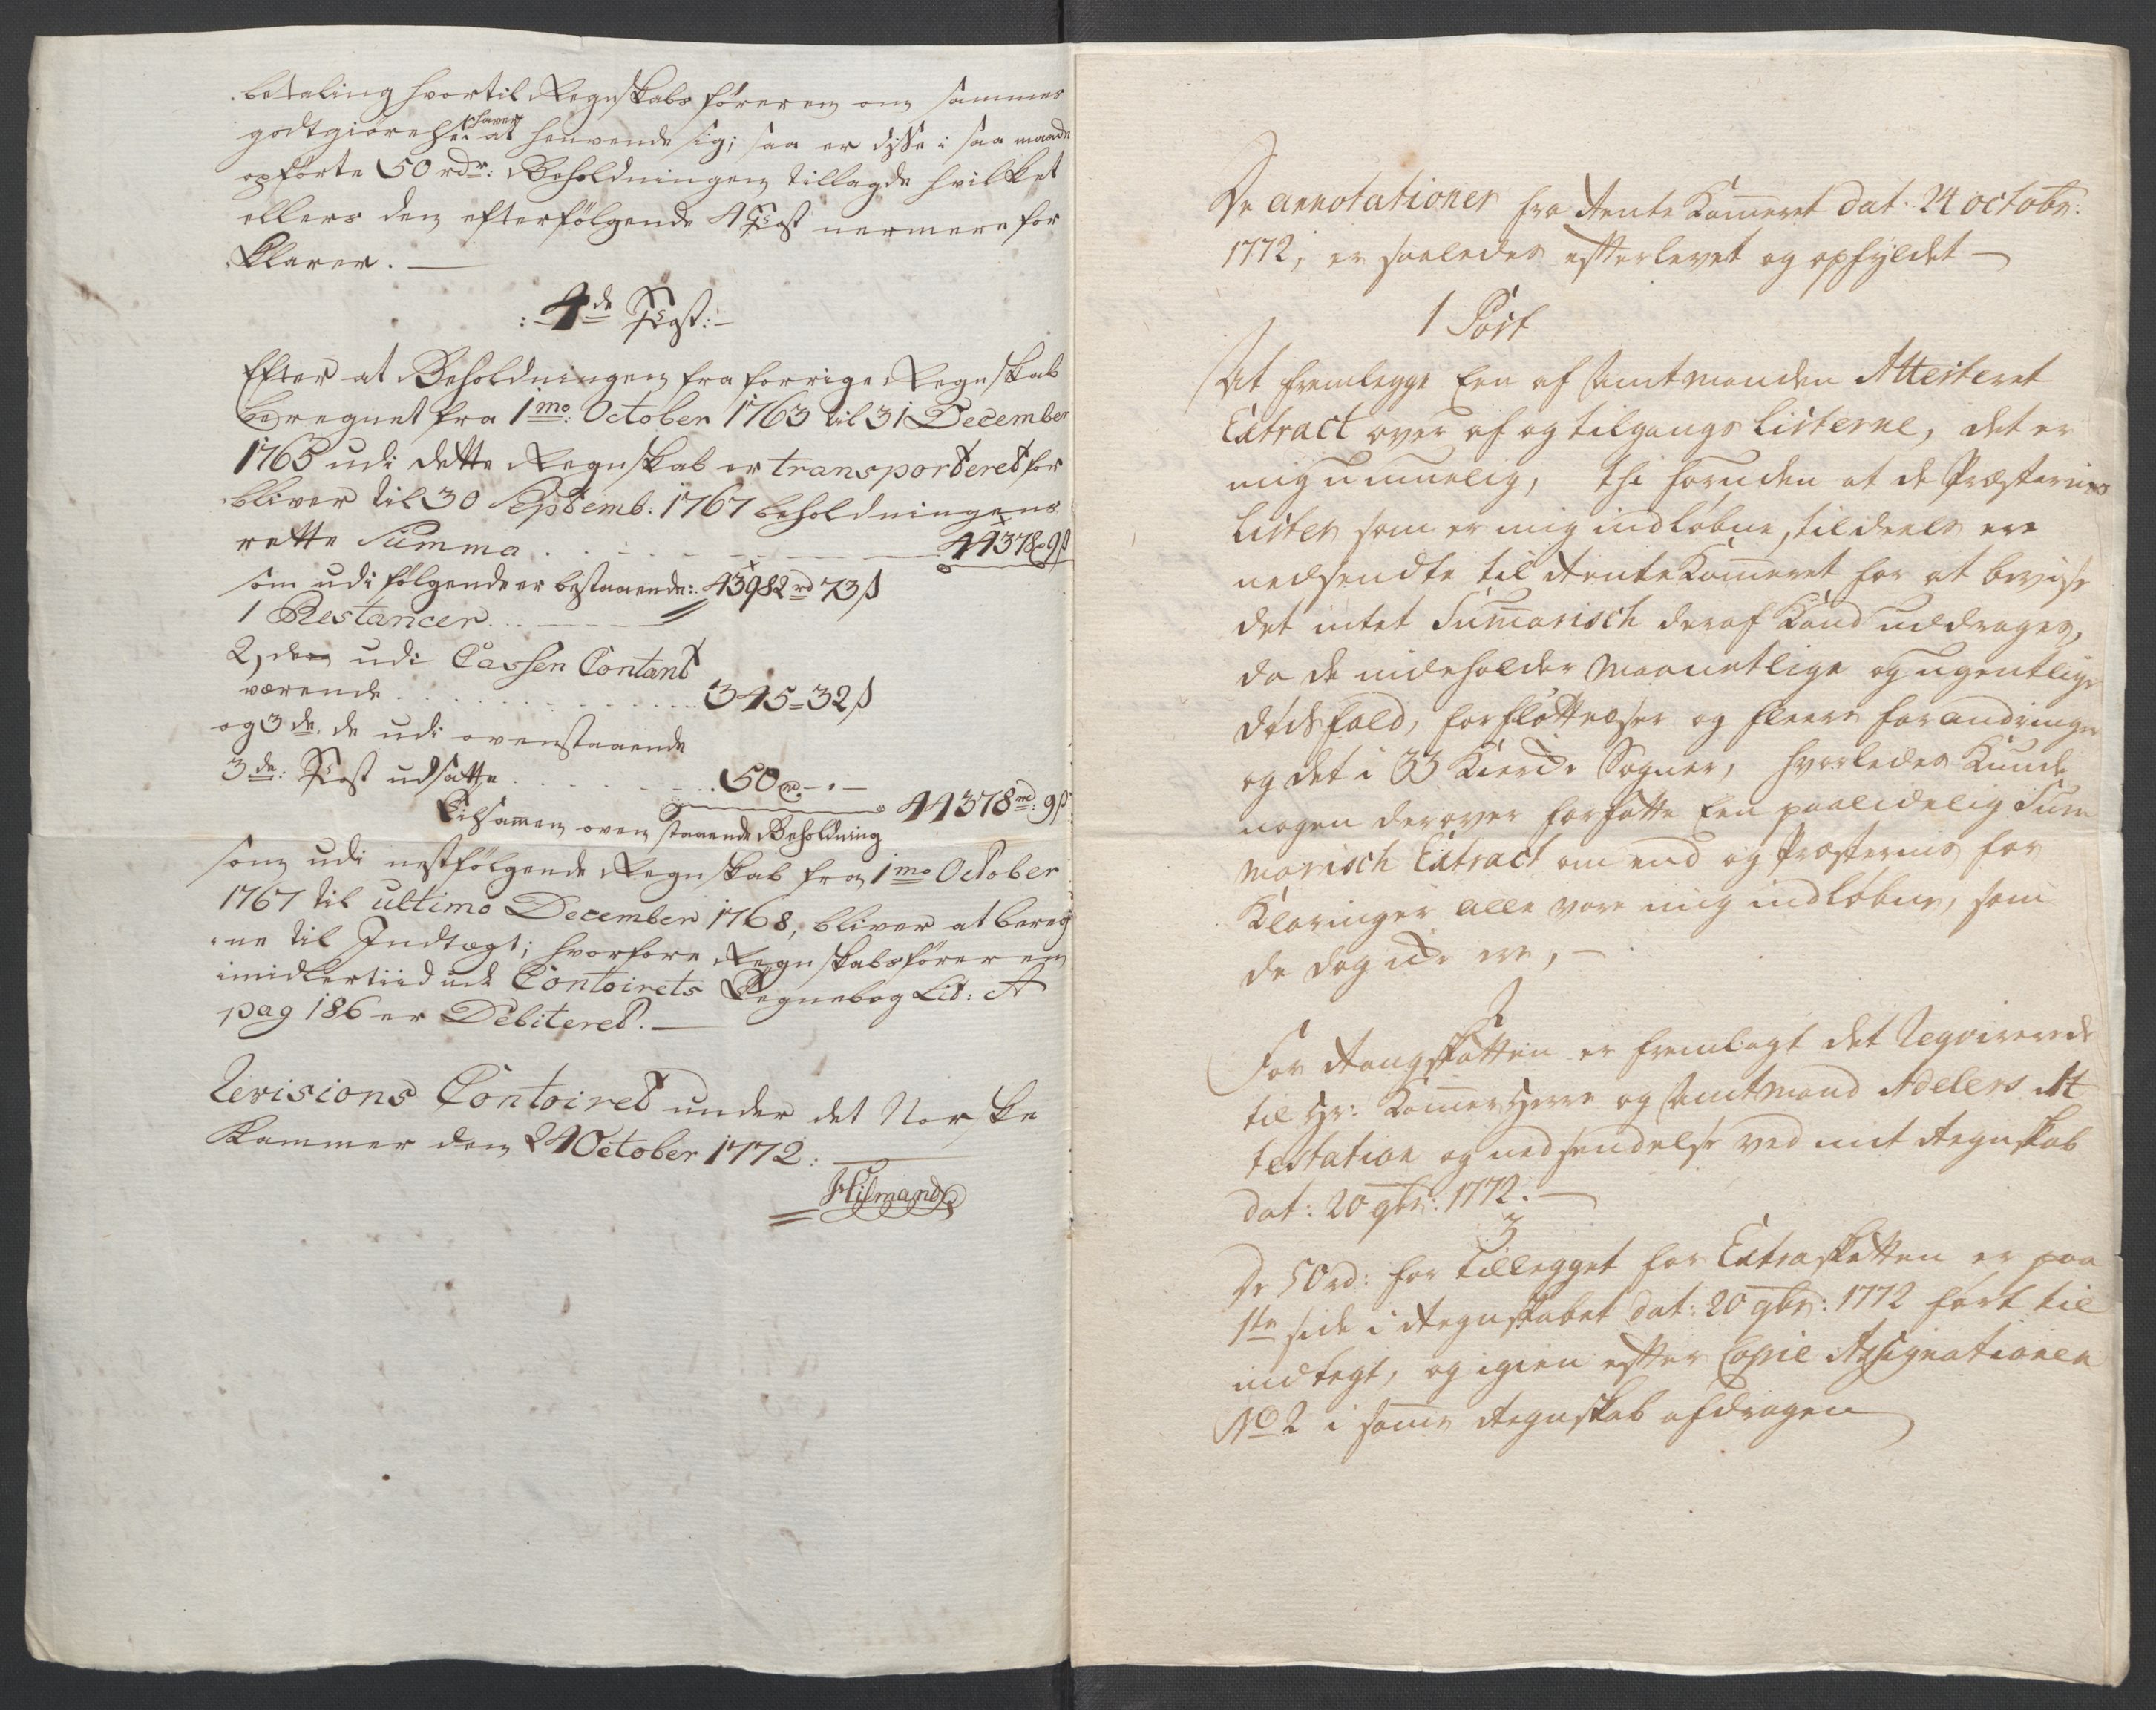 betaling hvortil Regnskabsføreren om sammes
godtgiørelse haver at henvende sig; saa er disse i saa maade
opførte 50 rdr: Beholdningen tillagde hvilket
ellers den efterfølgende 4 Post nermere for
klarer. —
:4de Post:—
Efter at Beholdningen fra forrige Regnskab
beregnet fra 1mo: October 1763 til 31 December
1765 udi dette Regnskab er transporteret for
bliver til 30 Septemb. 1767 beholdningens
rette Summa . . . 44378 rd 9 ß
som udi følgende er bestaaende: 43982 rd 73 ß
1 Restancer . . .
2, den udi Cassen Contant
værende . . . 345 = 32 ß
og 3de. de udi ovenstaaende
3de: Post udsatte . . . 50 rd - " -
Tilsamen ovenstaaende Beholdning 44378 rd: 9 ß:
som udi nestfølgende Regnskab fra 1mo October
1767 til ultimo December 1768, bliver at bereg
ne til Indtægt; hvorfore Regnskabsføreren
imidlertiid udi Contoirets Tegnebog Lit: A
pag 186 er Debiteret. —
Revisions Contoiret under det Norske
Kammer den 24 October 1772:
Hilmand
De annotationer fra Rente Kameret dat. 24 octobr:
1772, er saaledes efterlevet og opfyldet —
1 Post
At fremlegge Een af Amtmanden Attesteret
Extract over af og tilgangs Listerne, det er
mig umuelig, thi foruden at de Præsternes
Lister som er mig indløbne, tildeels ere
nedsendte til Rente Kameret for at bevise
det intet Sumarisch deraf Kand uddrages,
da de indeholder Maanetlige og ugentlige
dødsfald, forfløttelser og fleere forandringer
og det i 33 Kierke Sogner, hvorledes Kunde
nogen derover forfatte Een paalidelig Sum
marisch Extract om end og Præsternes for
Klaringer alle vare mig indløbne, som
de dog icke ere, —
2
For Rangskatten er fremlagt det Reqvirerede
til Hr: Kamerherre og Amtmand Adelers At
testation og nedsendelse ved mit Regnskab
dat: 20 9br: 1772. —
3
De 50 rd: for tillegget for Extraskatten er paa
1te side i Regnskabet dat: 20 9br: 1772 ført til
indtegt, og igien efter Copie Assignationen
No 2 i same Regnskab afdragen